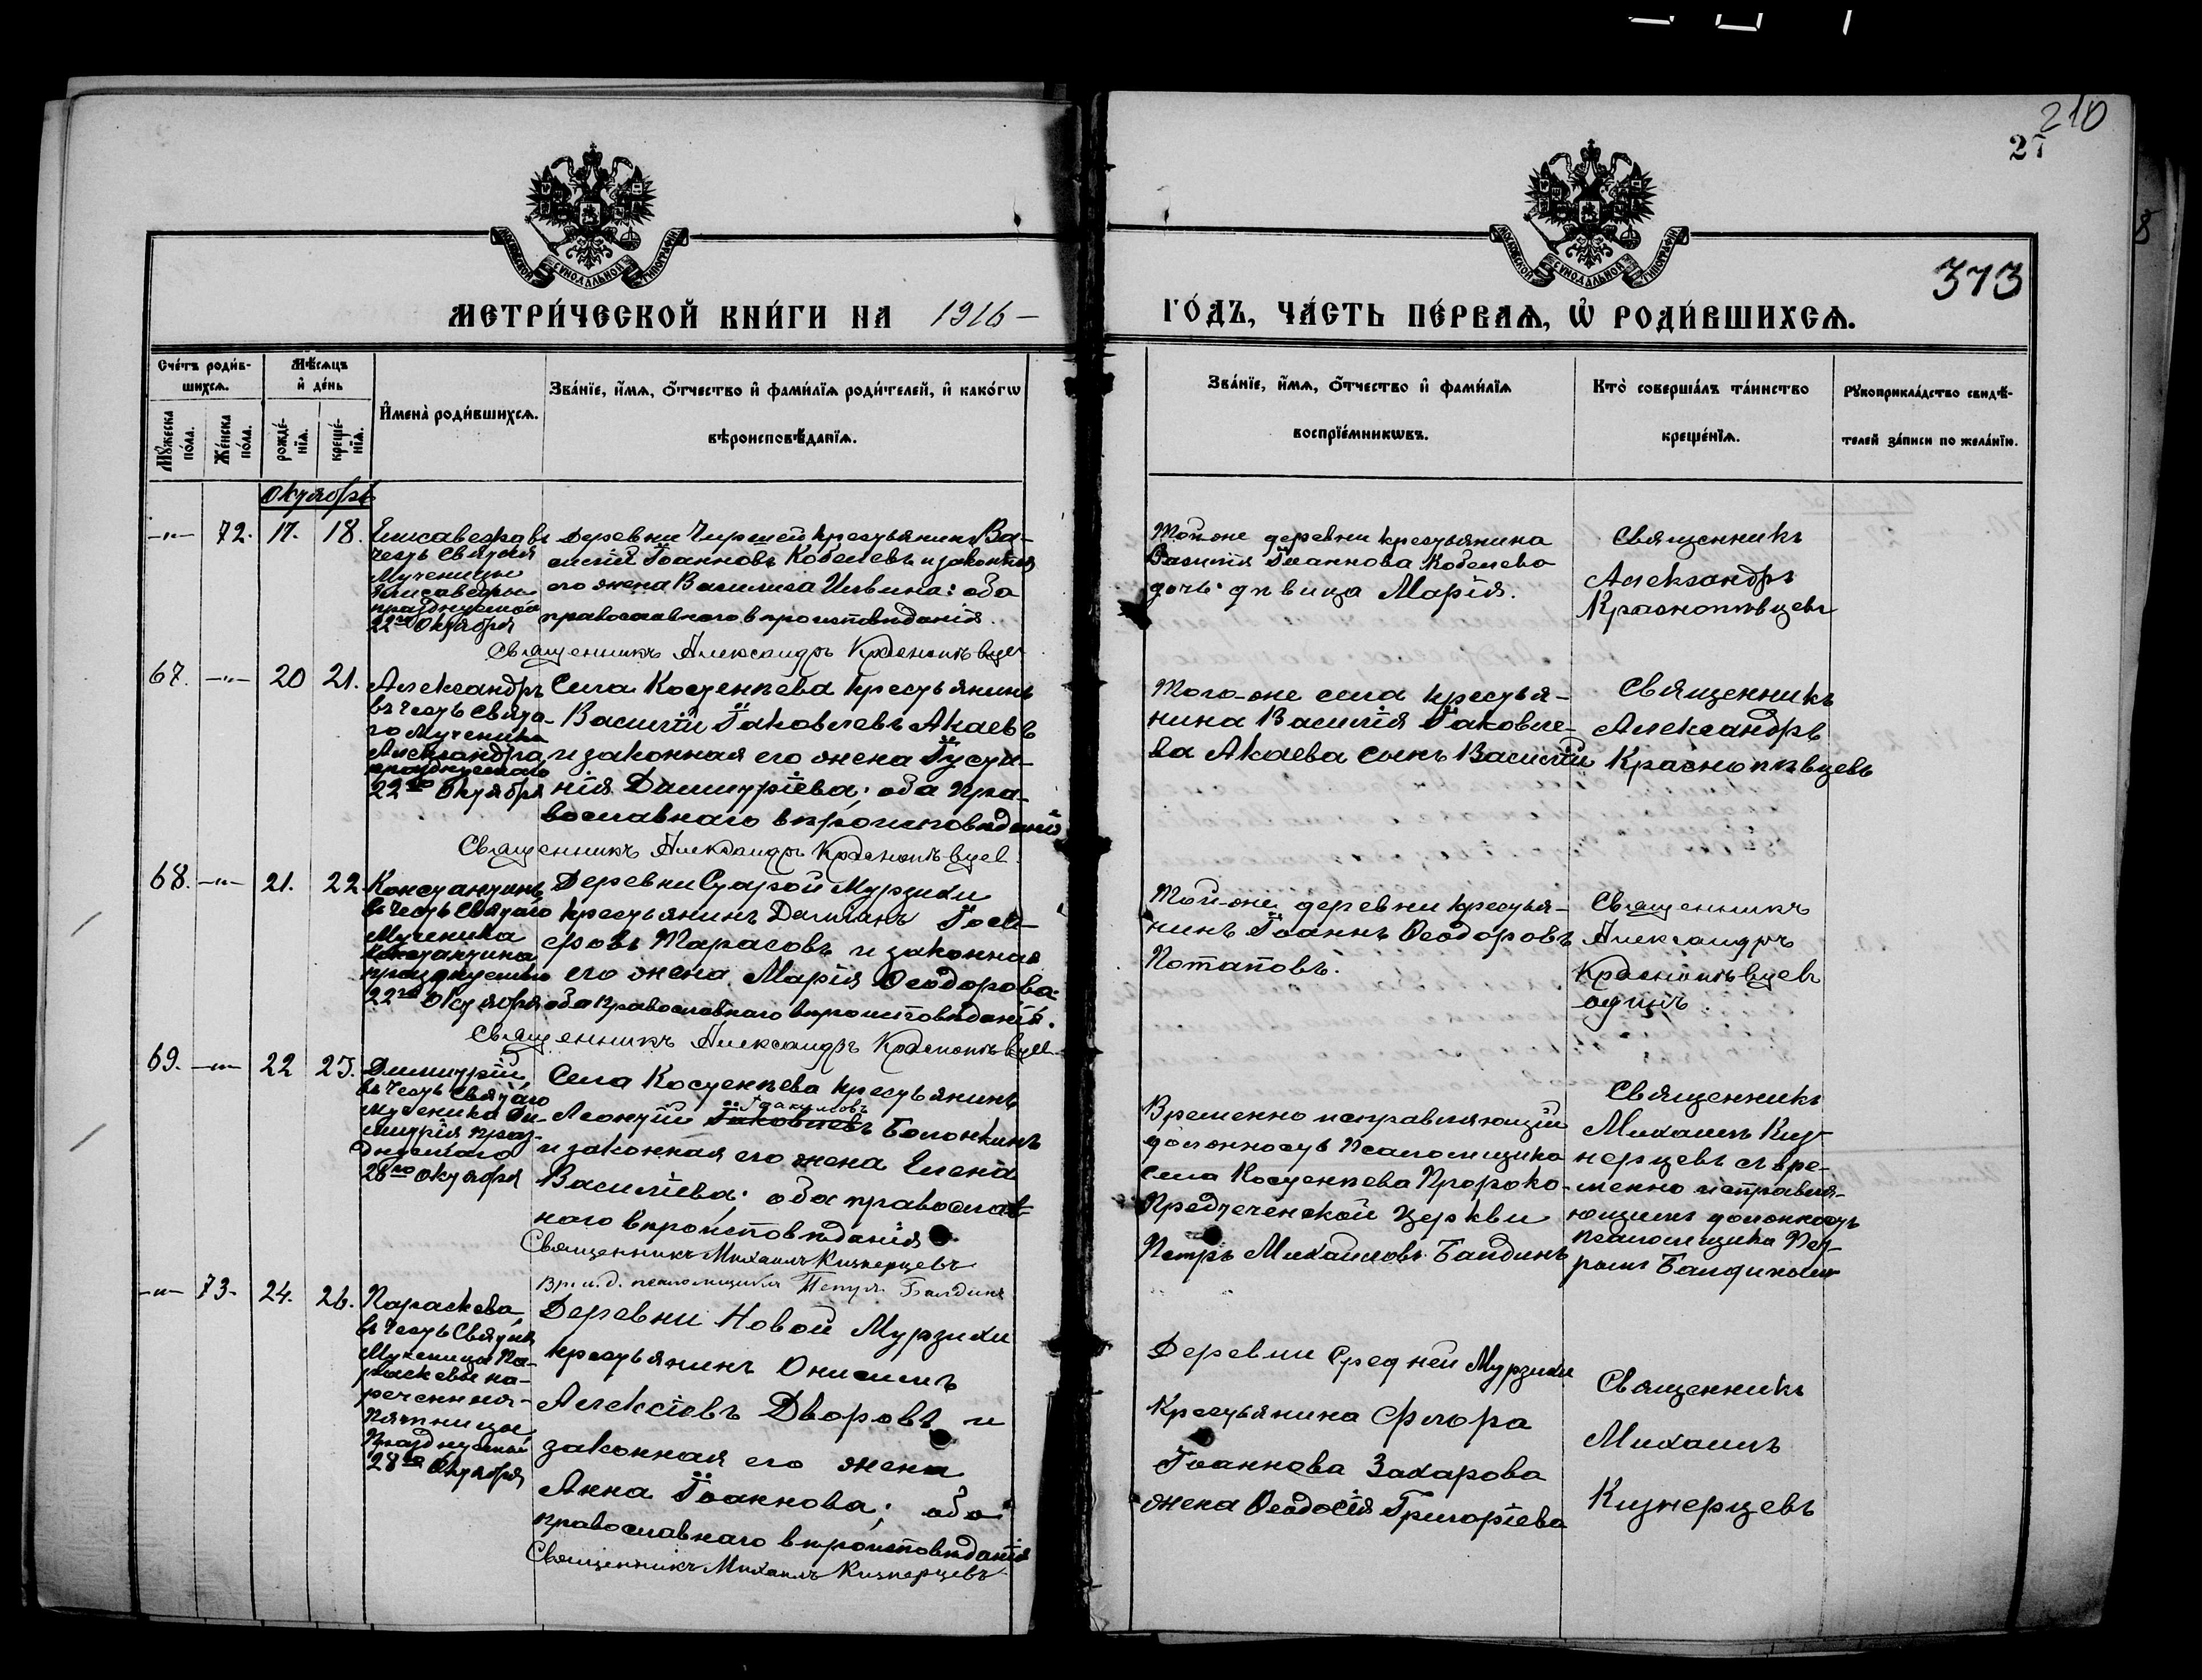 210
27
8
МОСКОВСКОЙ СѴНОДАЛЬНОЙ ТИПОГРАФІИ
МОСКОВСКОЙ СѴНОДАЛЬНОЙ ТИПОГРАФІИ
373
МЕТРИ́ЧЕСКОЙ КНИ́ГИ НА 1916 –
ГО́ДЪ, ЧА́СТЬ ПЕ́РВАѦ, Ѡ҆ РОДИ́ВШИХСѦ.
Сче́тъ роди́в-
шихсѧ.
Мꙋ́жеска по́ла.
Же́нска по́ла.
Мѣ́сѧцъ
и҆ де́нь
рожде́-
нїѧ.
креще́-
нїѧ.
И҆мена̀ роди́вшихсѧ.
Зва́нїе, и҆́мѧ, ѻ҆́тчество и҆ фами́лїѧ роди́телей, и҆ како́гѡ
вѣроисповѣ́данїѧ.
Зва́нїе, и҆́мѧ, ѻ҆́тчество и҆ фами́лїѧ
воспрїе́мникѡвъ.
Кто̀ соверша́лъ та́инство
креще́нїѧ.
Рꙋкоприкла́дство свидѣ́-
телей за́писи по жела́нїю.
Октябрь
-"- 72. 17. 18.
Елисавета въ
честь Святыя
Мученицы
Елисаветы
празднуемой
22го Октября
Деревни Чиршей крестьянинъ Ва-
силій Іоанновъ Кобелевъ и законная
его жена Василиса Ильина: оба
православнаго вѣроисповѣданія.
Священникъ Александръ Краснопѣвцев
Той-же деревни крестьянина
Василія Іоаннова Кобелева
дочь дѣвица Марія.
Священникъ
Александръ
Краснопѣвцевъ
67. -"- 20 21.
Александръ
въ честь Свята-
го Мученика
Александра,
празднуемаго
22го Октября
Села Костенѣева крестьянинъ
Василій Іаковлевъ Акаевъ
и законная его жена Іусти-
нія Димитріева; оба пра-
вославнаго вѣроисповѣданія
Священникъ Александръ Краснопѣвцев.
Того-же села крестья-
нина Василія Іаковле-
ва Акаева сынъ Василій
Священникъ
Александръ
Краснопѣвцевъ
68. -"- 21. 22
Константинъ
въ честь Святаго
Мученика
Константина
празднуемаго
22го Октября
Деревни Старой Мурзихи
крестьянинъ Даміанъ Іоси-
фовъ Тарасовъ и законная
его жена Марія Ѳеодорова:
оба православнаго вѣроисповѣданія.
Священникъ Александръ Краснопѣвцев
Той-же деревни крестья-
нинъ Іоаннъ Ѳеодоровъ
Потаповъ.
Священникъ
Александръ
Краснопѣвцевъ
одинъ.
69. -"- 22 25.
Димитрій
въ честь Святаго
мученика Ди-
митрія праз-
днуемаго
28го Октября
Села Костенѣева крестьянинъ
Іоакимовъ
Леонтій Іаковлевъ Болонкинъ
и законная его жена Елена
Василіева; оба православ-
наго вѣроисповѣданія
Священникъ Михаилъ Кизнерцевъ
Вр. и. д. псаломщика Петръ Балдинъ
Временно исправляющій
должность Псаломщика
села Костенѣева Пророко-
Предтеченской церкви
Петръ Михаиловъ Балдинъ
Священникъ
Михаилъ Киз-
нерцевъ съ вре-
менно исправля-
ющимъ должность
псаломщика Пет-
ромъ Балдинымъ
-"- 73. 24. 26.
Параскева,
въ честь Святыя
Мученицы Па-
раскевы на-
реченныя
Пятницы,
Празднуемой
28го Октября
Деревни Новой Мурзихи
крестьянинъ Онисимъ
Алексіевъ Дворовъ и
законная его жена
Анна Іоаннова; оба
православнаго вѣроисповѣданія
Священникъ Михаилъ Кизнерцевъ
Деревни Средней Мурзихи
Крестьянина Флора
Іоаннова Захарова
жена Ѳеодосія Григоріева
Священникъ
Михаилъ
Кизнерцевъ